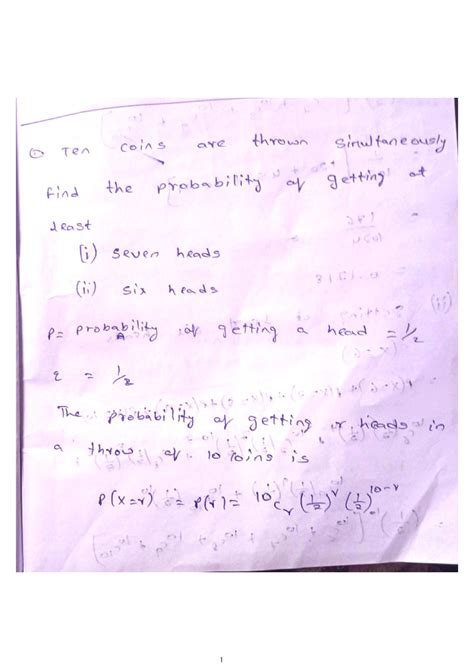 ① Ten coins are thrown simultaneously
find the probability of getting at
least
(i) seven heads
(ii) six heads
P= probability of getting a head = 1/2
q = 1/2
The probability of getting r heads in
a throw of 10 coins is
P(x=r) = P(r) = 10Cr (1/2)^r (1/2)^10-r
1